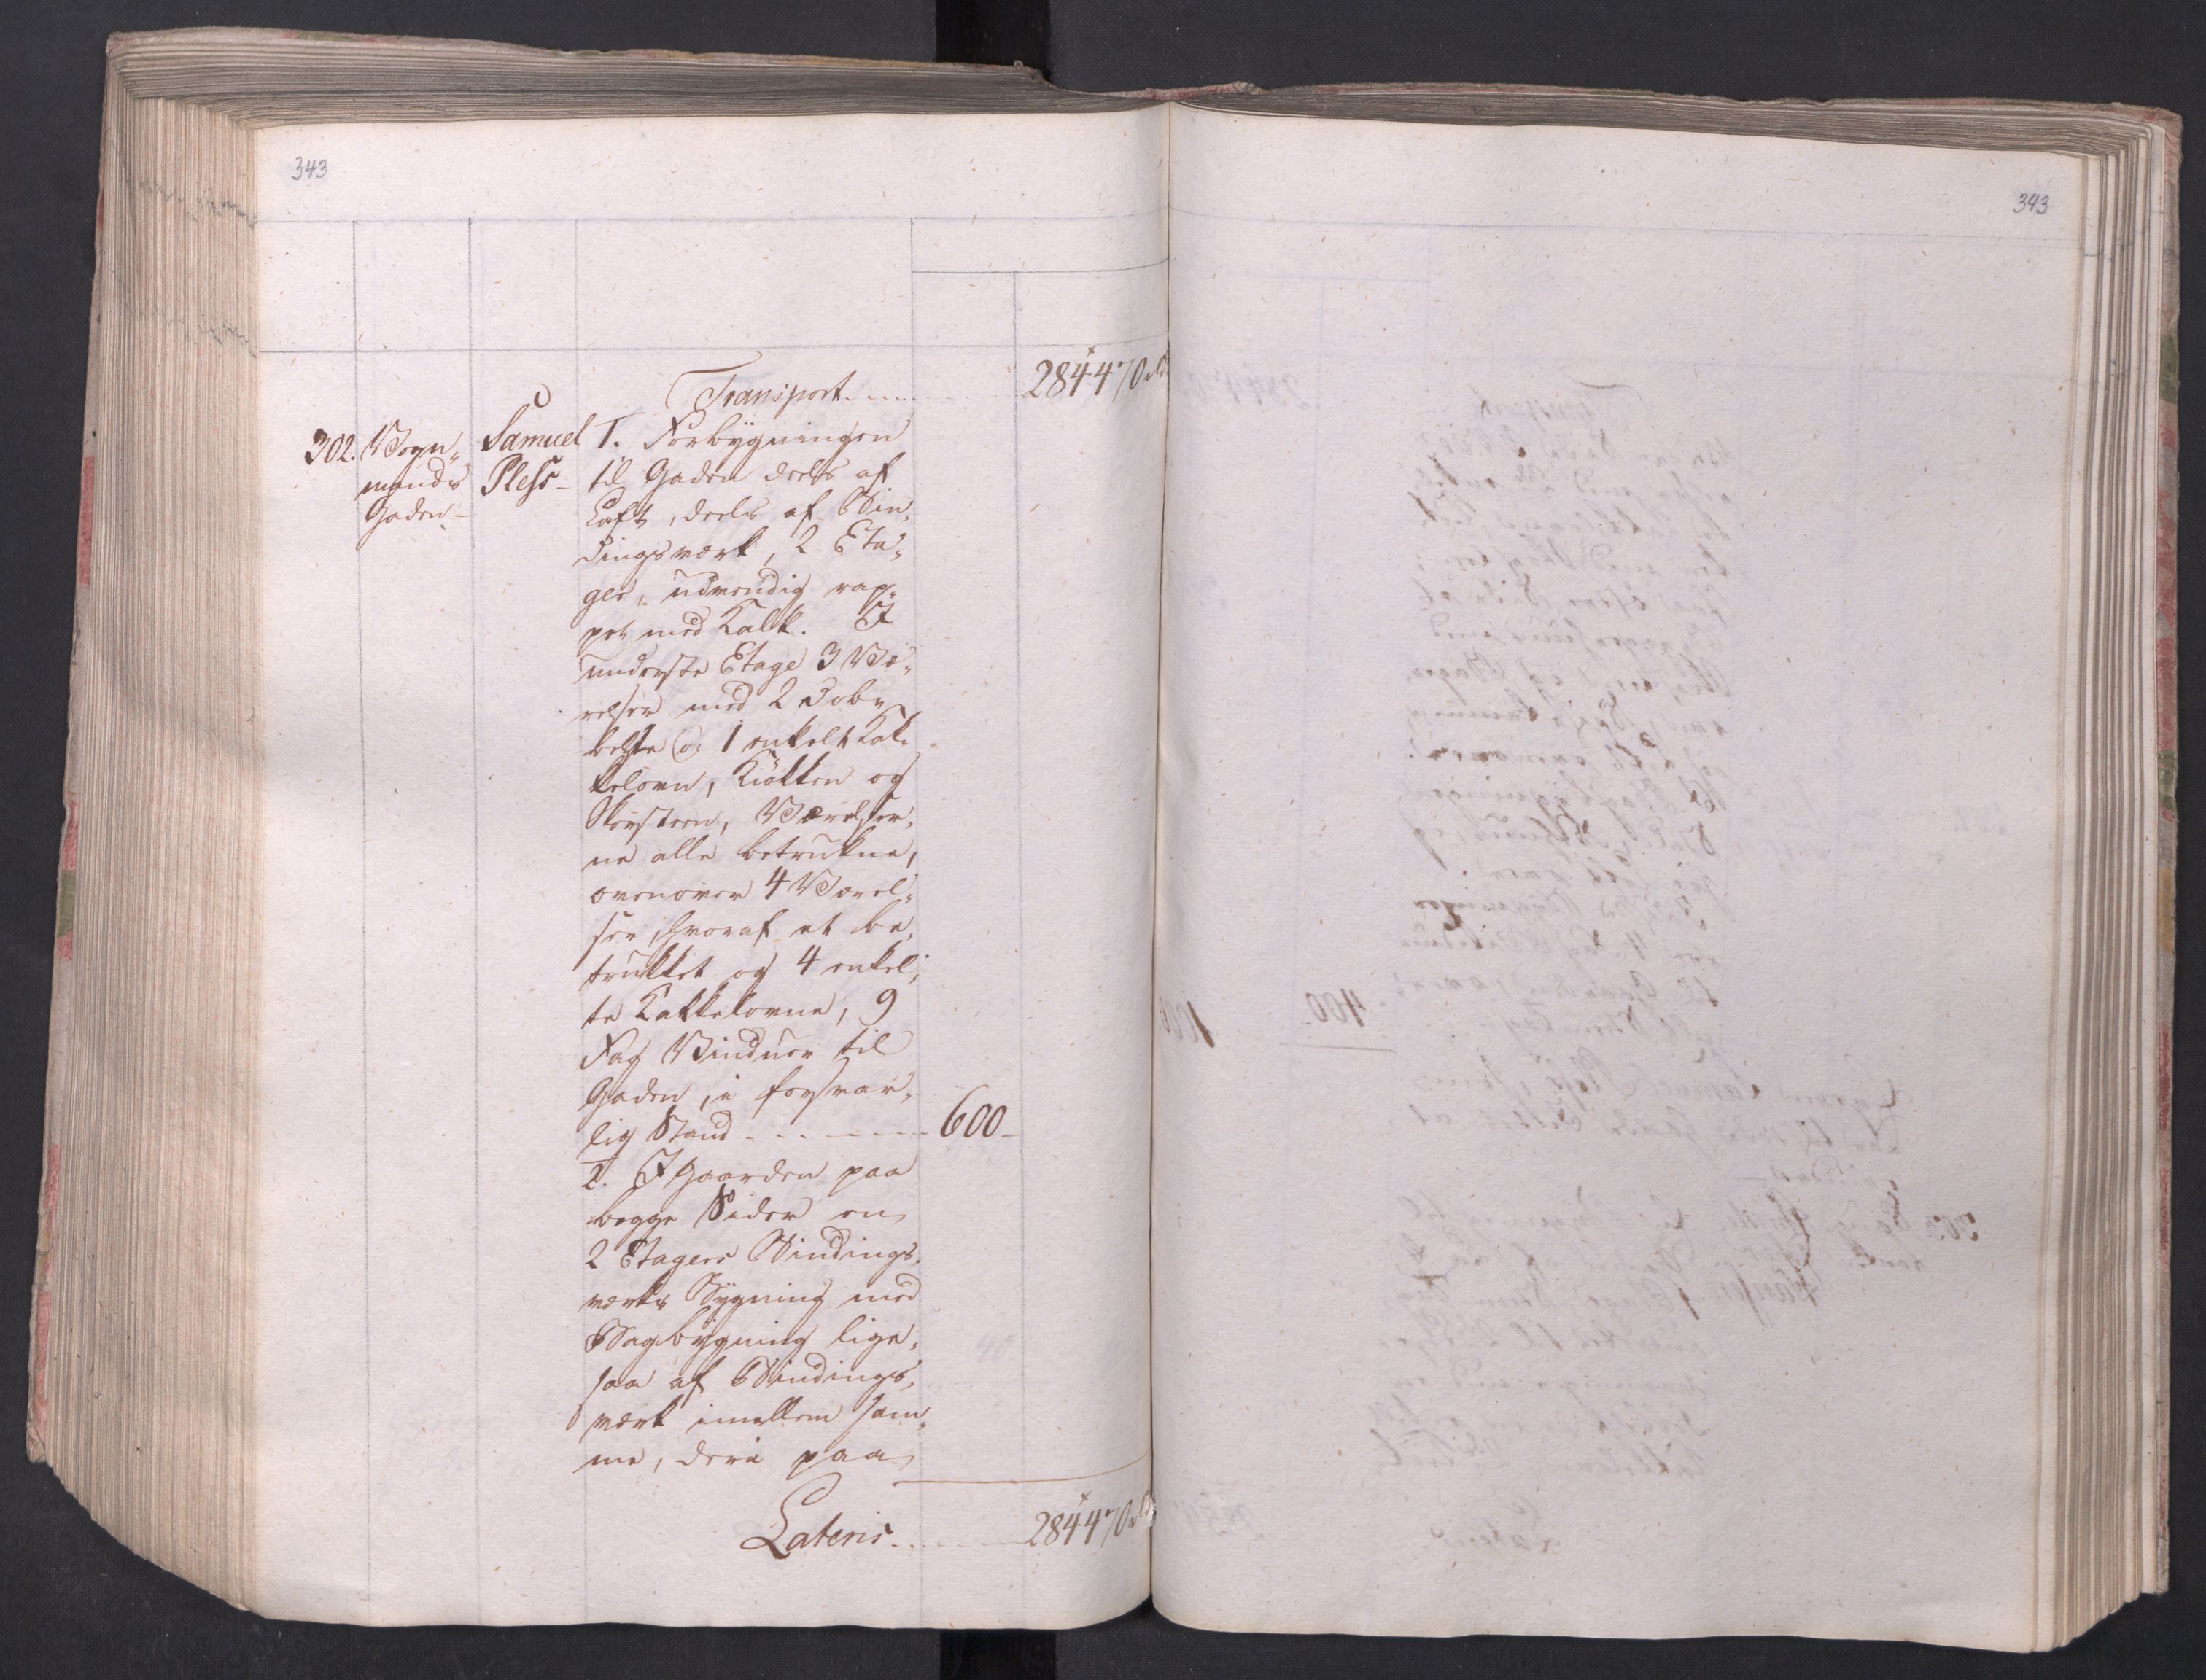 343
343
Transport.......... 284470 rd
302. Vogn„ Samuel 1. Forbygningen
mands Pless- til Gaden deels af
Gaden- deels af Bin„
dingsværk, 2 Eta„
ger, udvendig rap„
pet med Kalk. I
underste Etage 3 Væ„
relser med 2 dob„
belte og 1 enkelt Kak„
kelovn, Kiøkken og
Skorsteen, Værelser„
ne alle betrukne,
ovenover 4 Værel„
ser, hvoraf et be„
trukket og 4 enkel„
te Kakkelovne, 9
Fag Vinduer til
Gaden, i forsvar„
lig Stand ........ 600-
2. I Gaarden paa
begge Sider en
2 Etagers Bindings„
værks Bygning med
Bagbygning lige„
saa af Bindings„
værk imellem sam„
me, deri paa
Lateris ........ 284470 rd